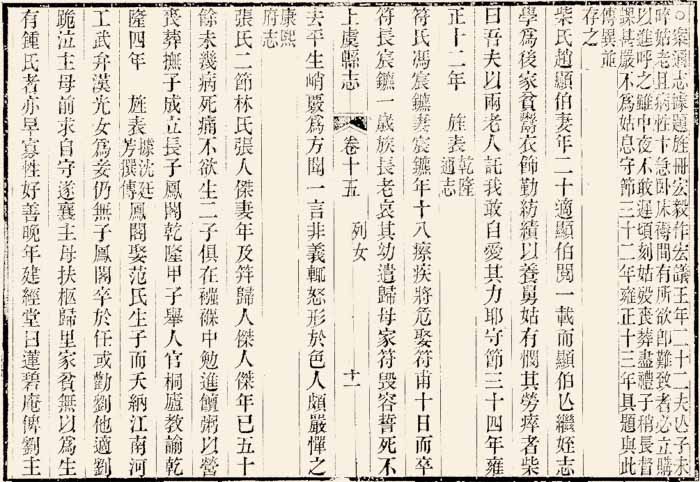 ○案通志課題旌冊宏毅作宏議王年二十二夫亡子未
晬姑老且病性卞急臥床褥間有所欲卽難致者必立購
以進呼之雖中夜不敢遲頃刻姑歿喪葬盡禮子稍長督
課甚嚴不爲姑息守節三十二年雍正十三年具題與此
傳異並
存之
柴氏趙顯伯妻年二十適顯伯閱一載而顯伯亾繼姪志
學爲後家貧鬻衣飾勤紡績以養舅姑有憫其勞瘁者柴
曰吾夫以兩老人託我敢自愛其力耶守節三十四年雍
正十二年 旌表乾隆
通志
符氏馮宸鑣妻宸鑣年十八瘵疾將危娶符甫十日而卒
符長宸鑣一歲族長老哀其幼遣歸母家符毀容誓死不
上虞縣志 卷十五 列女 十一
去平生峭嚴爲方閫一言非義輒怒形於色人頗嚴憚之
康熙
府志
張氏二節林氏張人傑妻年及筓歸人傑人傑年已五十
餘未幾病死痛不欲生二子俱在襁褓中勉進饘粥以營
喪葬撫子成立長子鳳閣乾隆甲子舉人官桐廬教諭乾
隆四年 旌表滕沈廷
芳撰傳鳳閣娶范氏生子而夭納江南河
工武弁漢光女爲妾仍無子鳳閣卒於任或勸劉他適劉
跪泣主母前求自守遂襄主母扶柩歸里家貧無以爲生
有鍾氏者亦早寡性好善晚年建經堂曰蓮碧庵俾劉主